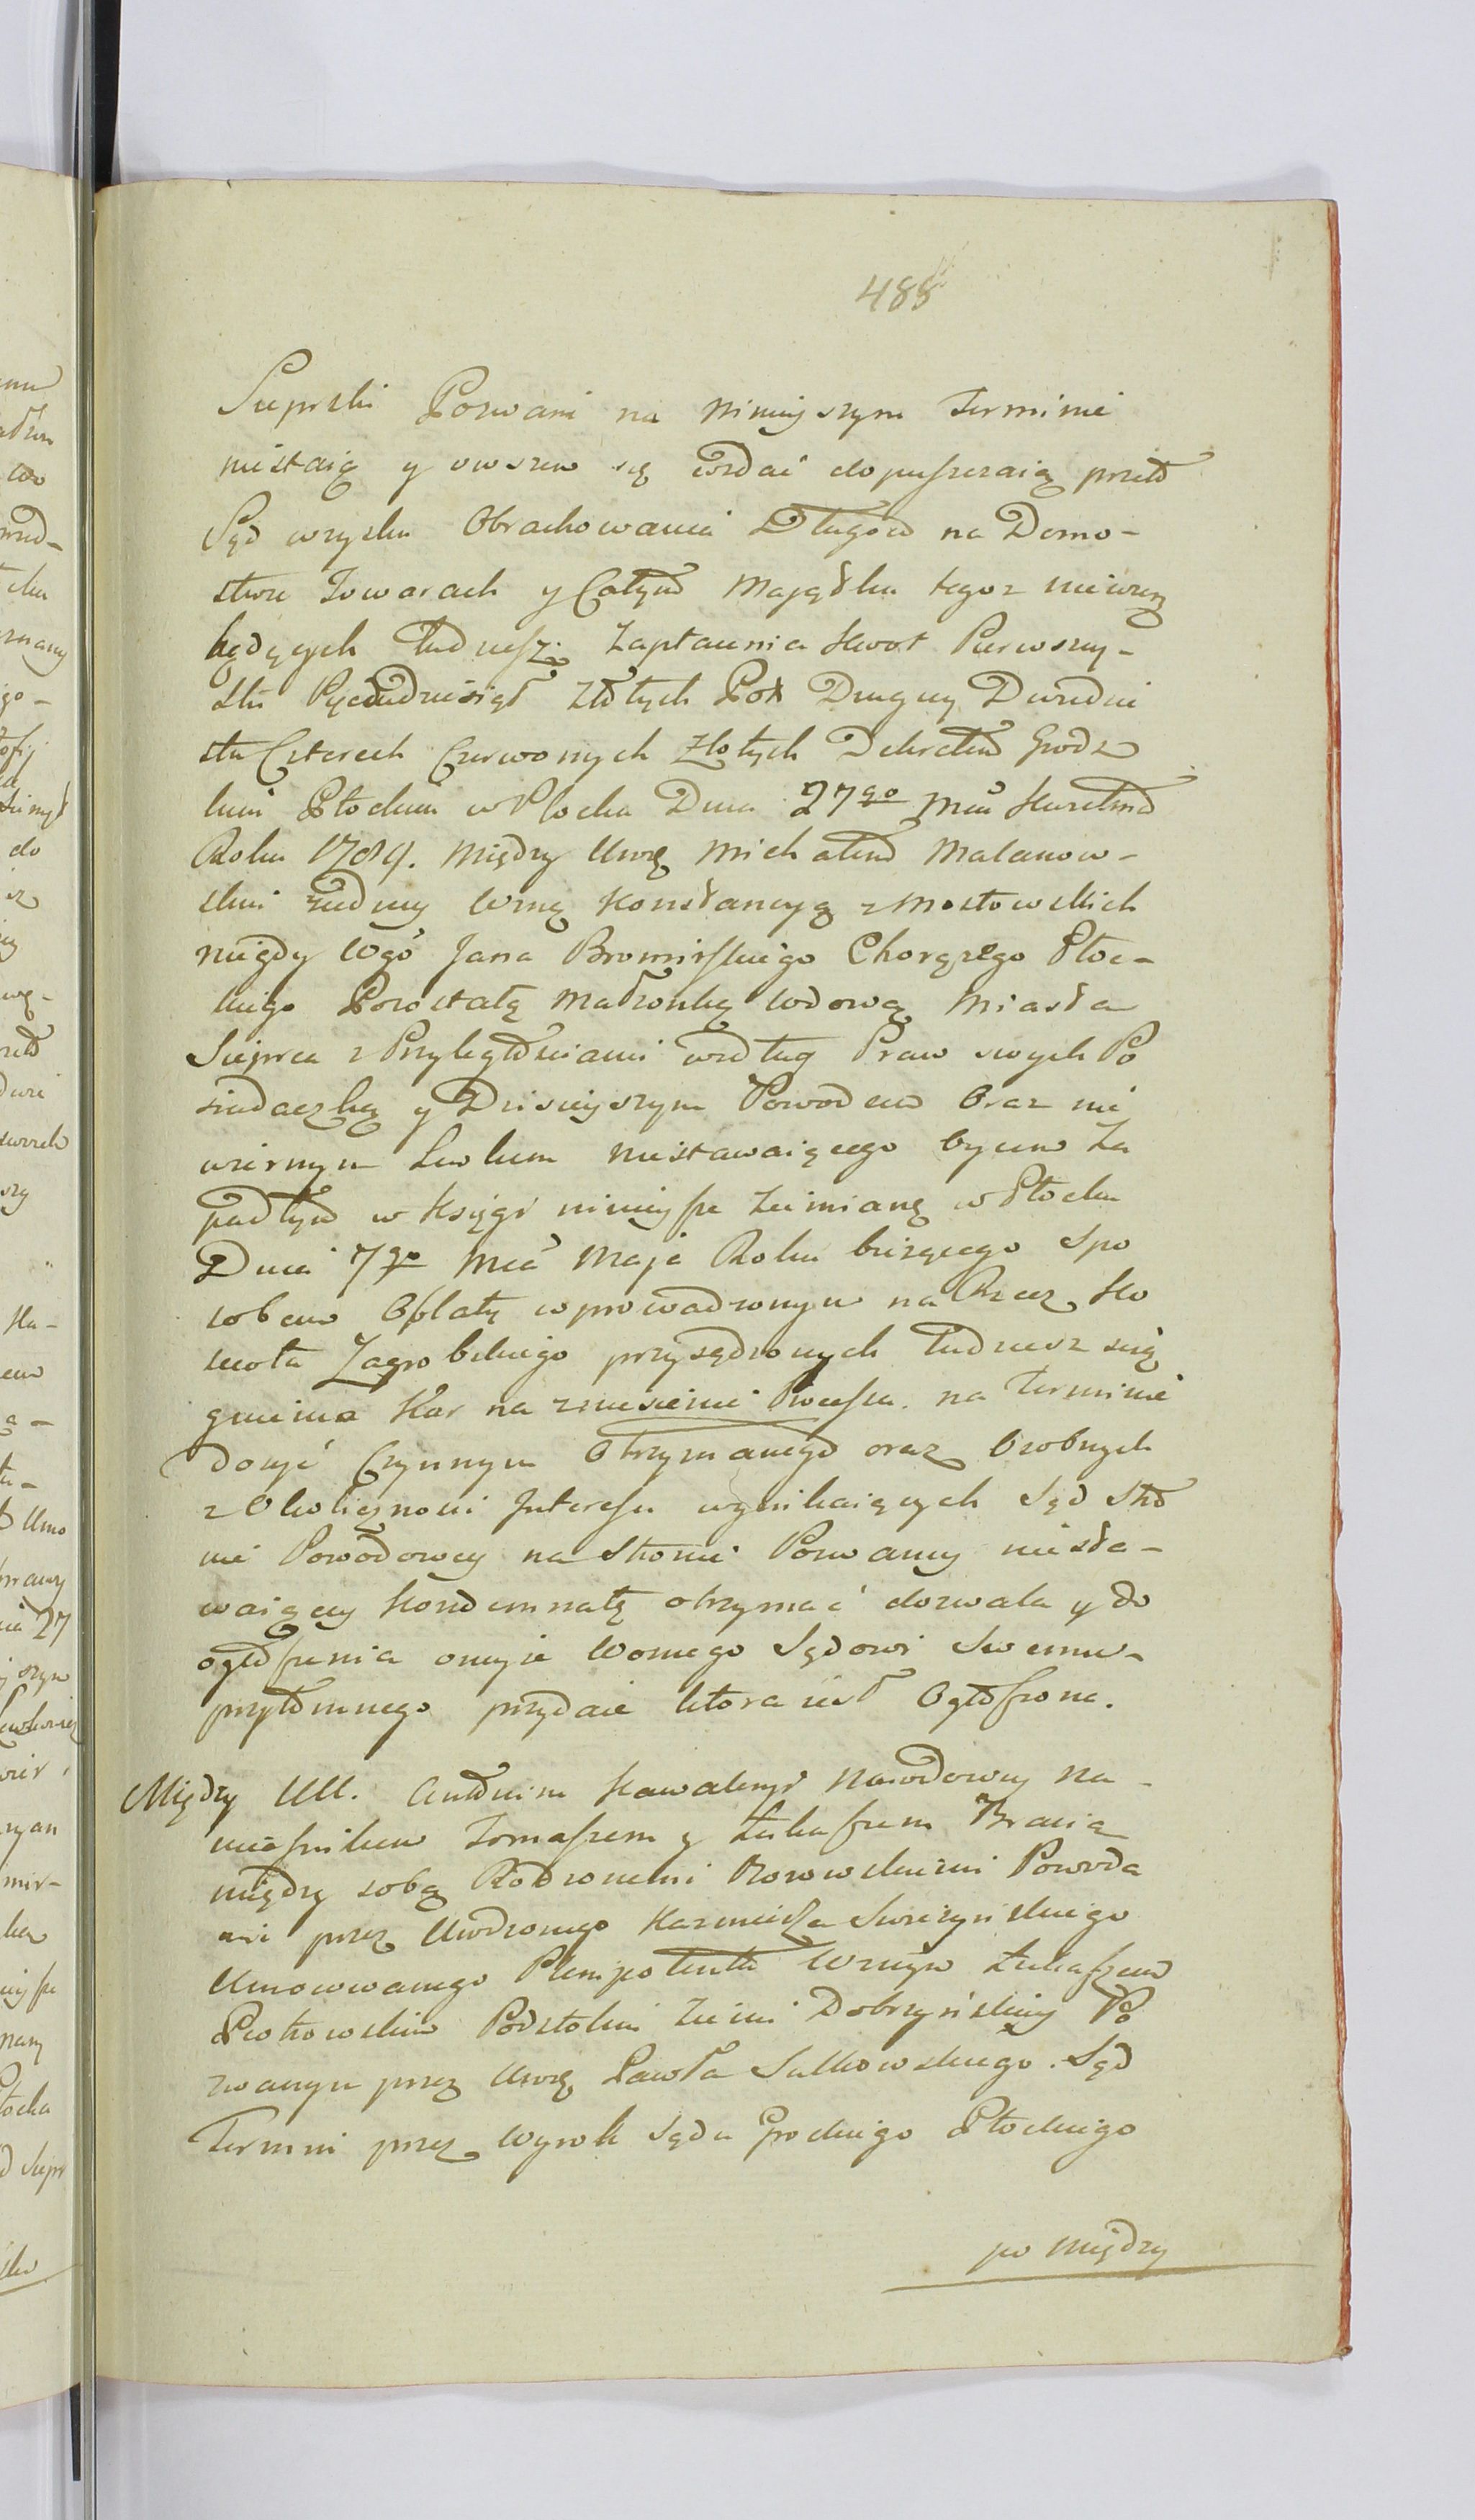 488
Sieprski Pozwani na ninieyszym Terminie
niestaią y owszem się wzdać dopuszczaią przeto
Sąd wzysku Obrachowania Długów na Domo-
stwie Towarach y Całym Maiątku tegoż niewier
będących tudziesz Zapłacenia kwot Pierwszey-
Stu Pięciudziesiąt Złotych Pol Drugiey Dwudzie
stu Czterech Czerwonych Złotych Dekretem Grodz
kim Płockim w Płocku Dnia 27go Mca Kwietnia
Roku 1789. między Urą Michałem Malanow-
skim tudziesz Wną Konstancyą z Mostowskich
niegdy Wgo Jana Bromirskiego Chorążego Płoc-
kiego Pozostałą Małżonką Wdową Miasta
Sieprca z Przyległościami według Praw swych Po
siadaczką y Dzisieyszym Powodem Oraz nie
wiernym Lewkiem niestawaiącego bycem Za
padłym w Księgi ninieysze Ziemianę w Płocku
Dnia 7go Mca Maja Roku bieżącego Spo
sobem Oblaty wprowadzonym na Rzecz
Zagrobskiego przysądzonych tudziesz
gnienia Kar na zniesienie Processu na Terminie
dosyć Czynnym Otrzymanego oraz Osobnych
z Okoliczności Interesu wynikaiących Sąd Stro
nie Powodowey na Stronie Pozwaney niesta-
waiącey Kondemnatę otrzymać dozwala y do
ogłoszenia oneyże Woznego Sądowi Swemu-
przytomnego przydaie która iest Ogłoszona.
Między UU. Antonim Kawaleryi Narodowey Na-
miesnikiem Tomaszem y Łukaszem Bracią
między sobą Rodzonemi Powoda
mi przez Urodzonego Kazmierza
Umocowanego Plenipotenta Wnym Łukaszem
Piotrowskim Podstolim Ziemi Dobrzyńskiey Po
zwanym przez Urą Pawła Sulkowskiego. Sąd
Termin przez Wyrok Sądu Grodzkiego Płockiego
po między